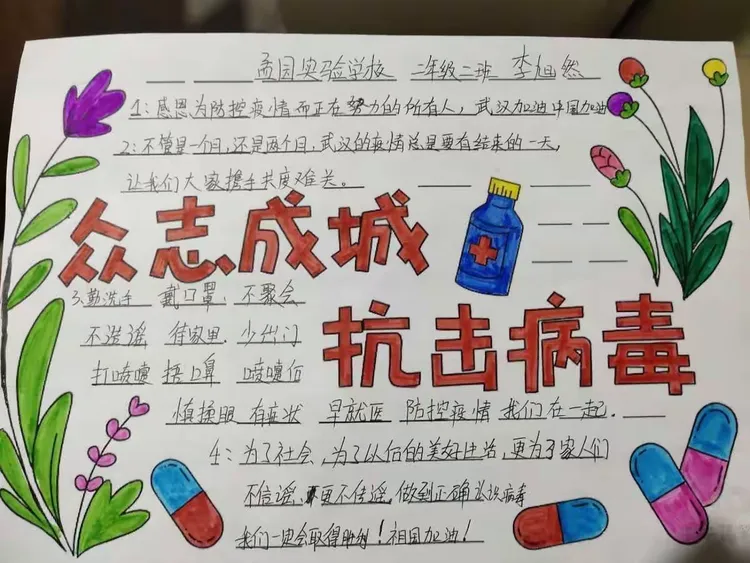 孟园实验学校 二年级二班 李旭然
1:感恩为防控疫情而正在努力的所有人,武汉加油中国加油
2:不管是一个月,还是两个月,武汉的疫情总是要有结束的一天,
让我们大家携手共度难关。
众志成城
3.勤洗手 戴口罩 不聚会
抗击病毒
不造谣 待家里 少出门
打喷嚏 捂口鼻 喷嚏后
慎揉眼 有症状 早就医 防控疫情 我们在一起.
4:为了社会,为了以后的美好生活,更为了家人们
不信谣,更不传谣,做到正确认识病毒
我们一定会取得胜利!祖国加油!